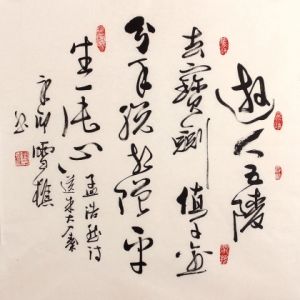 遊人五陵
去寶劍值千金
分手脱相贈平
生一片心
孟浩然詩
送朱大入秦
雪樵